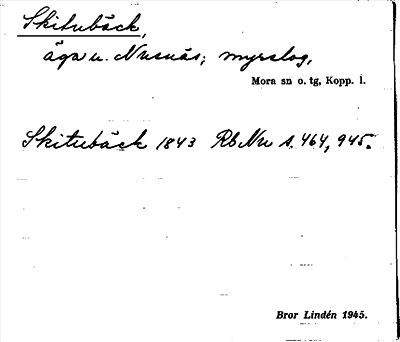 Skitubäck,
äga u. Nusnäs; myrslog,
Mora sn o. tg, Kopp. l.
Skitubäck 1843 Rb Nu s. 464, 945.
Bror Lindén 1945.